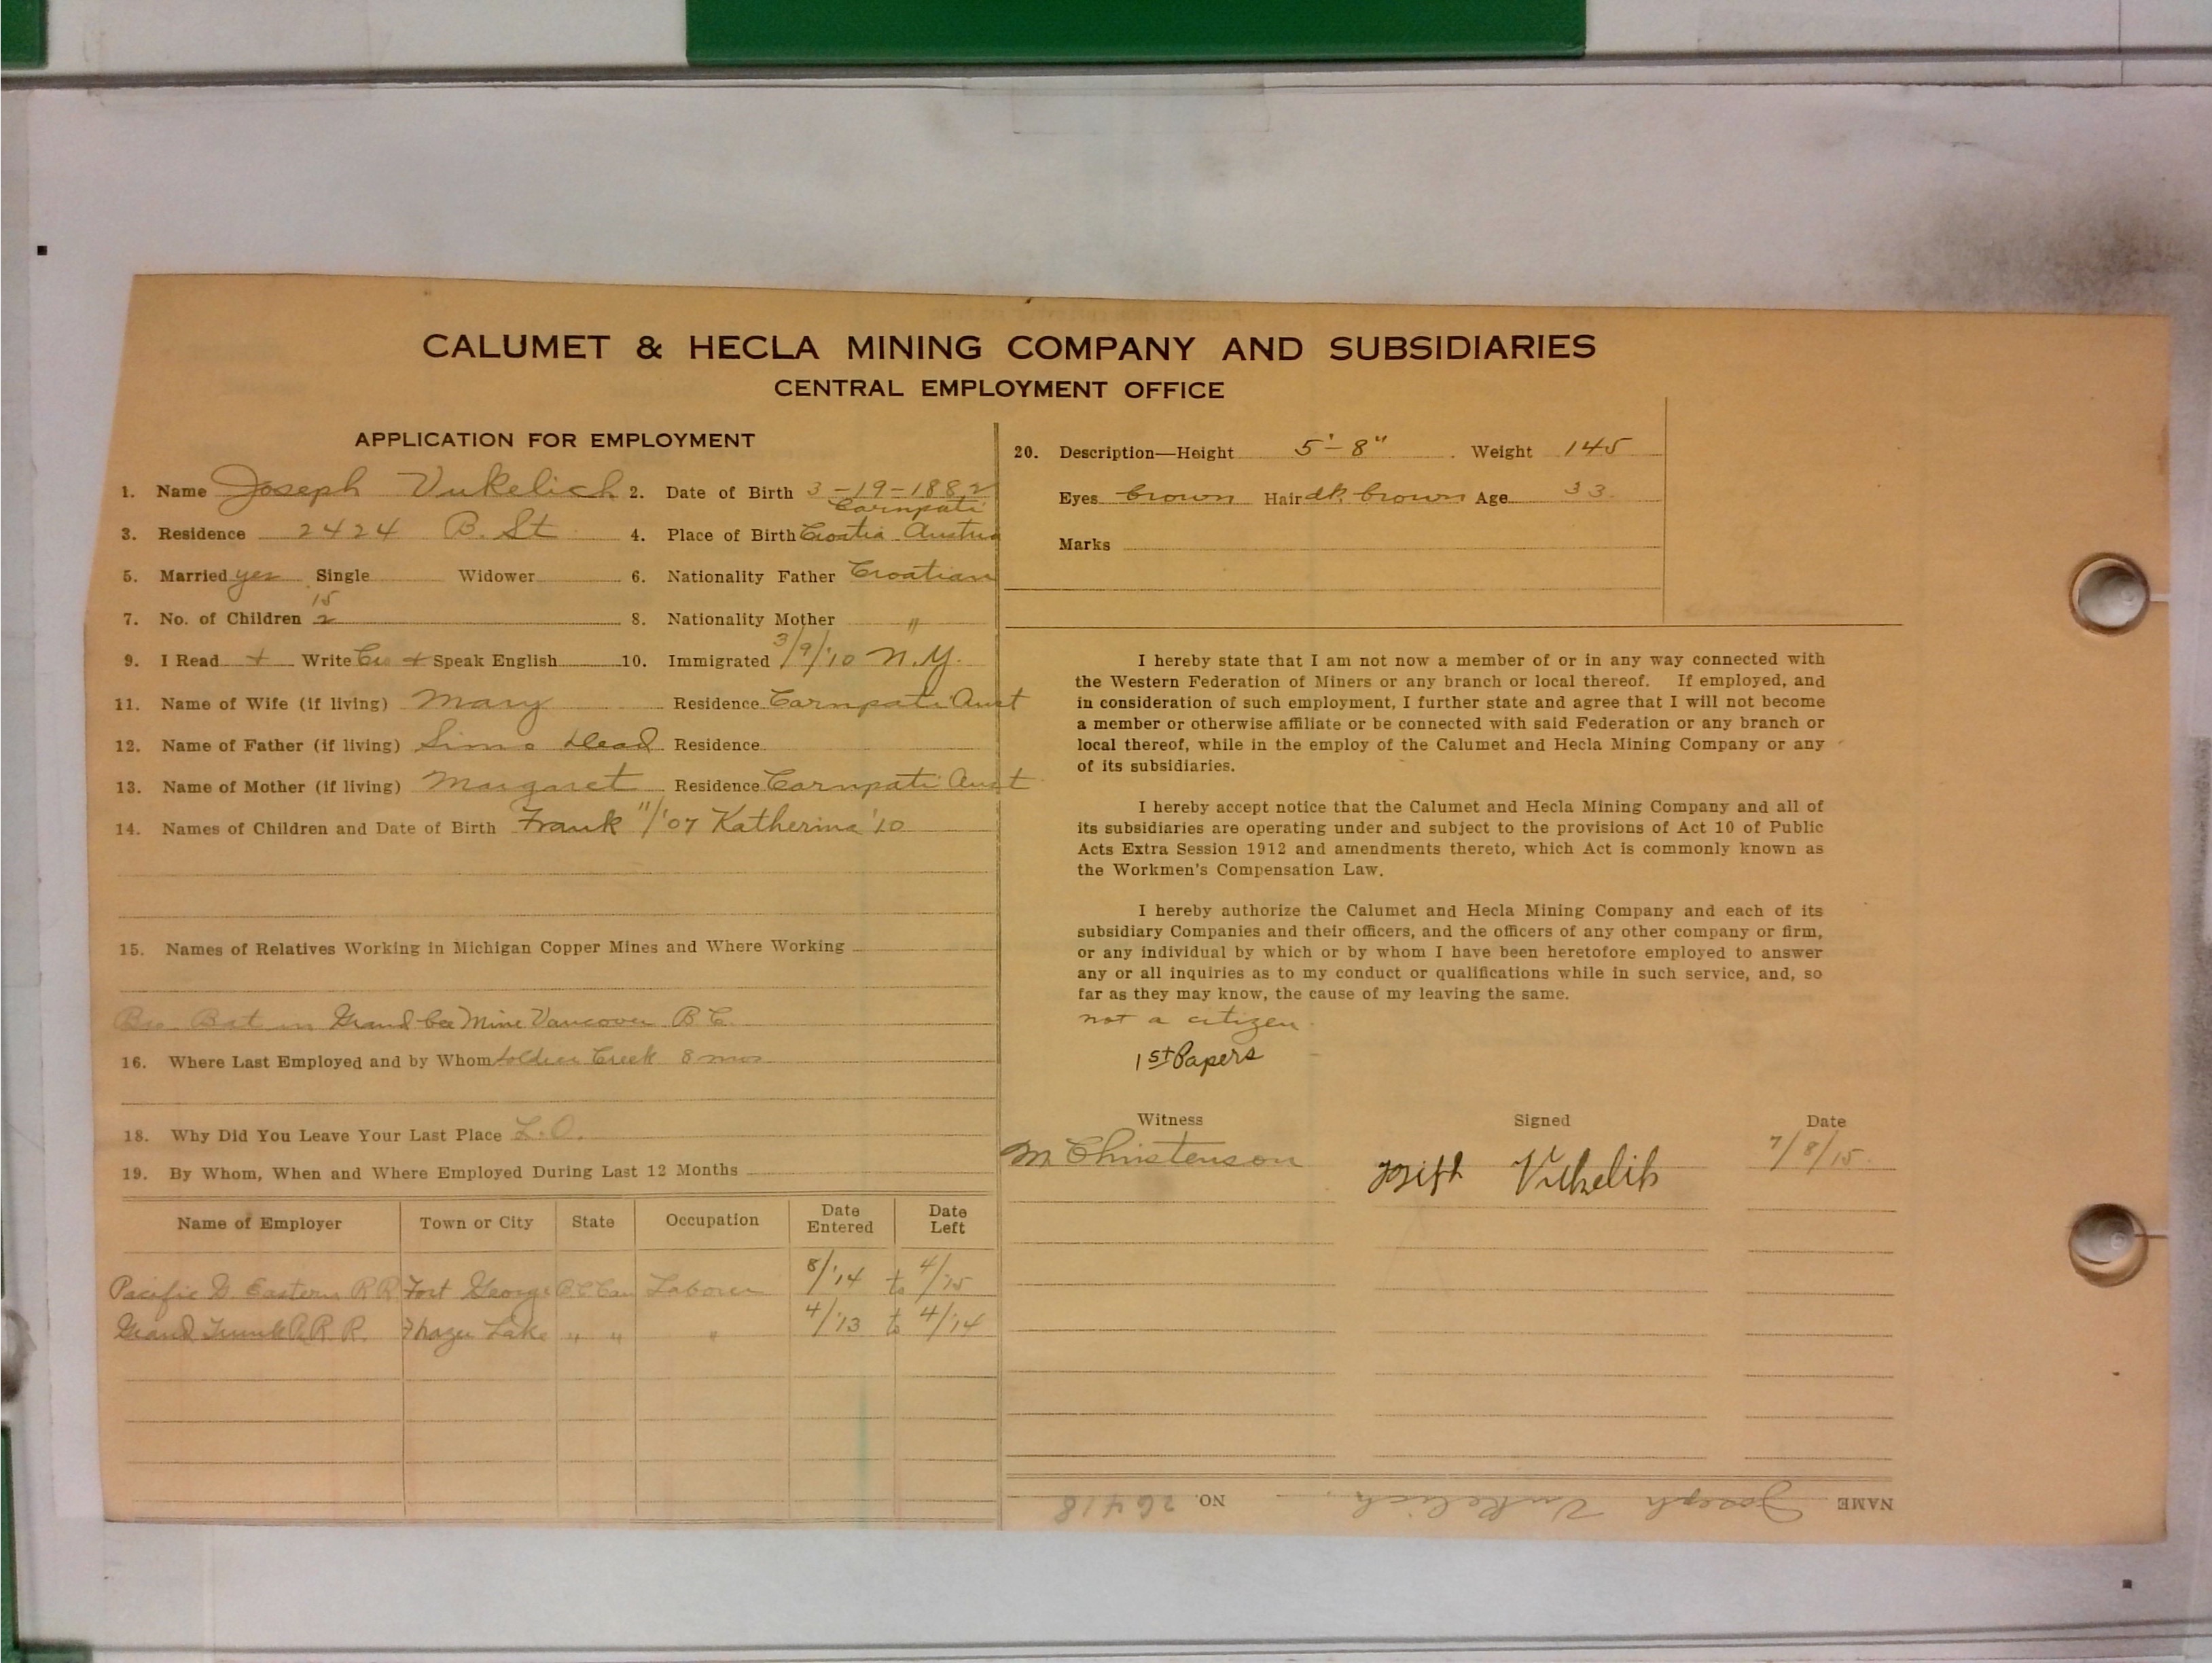 CALUMET & HECLA MINING COMPANY AND SUBSIDIARIES
CENTRAL EMPLOYMENT OFFICE
APPLICATION FOR EMPLOYMENT
1. Name Joseph Vukelich 2. Date of Birth 3-19-1882
Carnpati
3. Residence 2424 B. St 4. Place of Birth Croatia Austria
5. Married yes Single Widower 6. Nationality Father Croatian
15
7. No. of Children 2 8. Nationality Mother "
9. I Read + Write Cro + Speak English 10. Immigrated 3/9/'10 N.Y.
11. Name of Wife (if living) Mary Residence Carnpati Aust
12. Name of Father (if living) Simo Dead Residence
13. Name of Mother (if living) Margaret Residence Carnpati Aust
14. Names of Children and Date of Birth Frank 11/'07 Katherina '10
15. Names of Relatives Working in Michigan Copper Mines and Where Working
Bro. Bat in Grand Mine Vancover B C.
16. Where Last Employed and by Whom Creek 8 mos
18. Why Did You Leave Your Last Place L.O.
19. By Whom, When and Where Employed During Last 12 Months
Name of Employer Town or City State Occupation Date Entered Date Left
Pacific G Eastern R R Fort George B C Can Laborer 8/'14 to 4/'15
Grand Trunk P. R R. Lake " " " 4/'13 to 4/'14
20. Description—Height 5'-8" Weight 145
Eyes brown Hair dk. brown Age 33
Marks
I hereby state that I am not now a member of or in any way connected with
the Western Federation of Miners or any branch or local thereof. If employed, and
in consideration of such employment, I further state and agree that I will not become
a member or otherwise affiliate or be connected with said Federation or any branch or
local thereof, while in the employ of the Calumet and Hecla Mining Company or any
of its subsidiaries.
I hereby accept notice that the Calumet and Hecla Mining Company and all of
its subsidiaries are operating under and subject to the provisions of Act 10 of Public
Acts Extra Session 1912 and amendments thereto, which Act is commonly known as
the Workmen's Compensation Law.
I hereby authorize the Calumet and Hecla Mining Company and each of its
subsidiary Companies and their officers, and the officers of any other company or firm,
or any individual by which or by whom I have been heretofore employed to answer
any or all inquiries as to my conduct or qualifications while in such service, and, so
far as they may know, the cause of my leaving the same.
not a citizen
1st Papers
Witness Signed Date
M Christenson Vukelih 7/8/15
NAME Joseph Vukelich NO. 26418